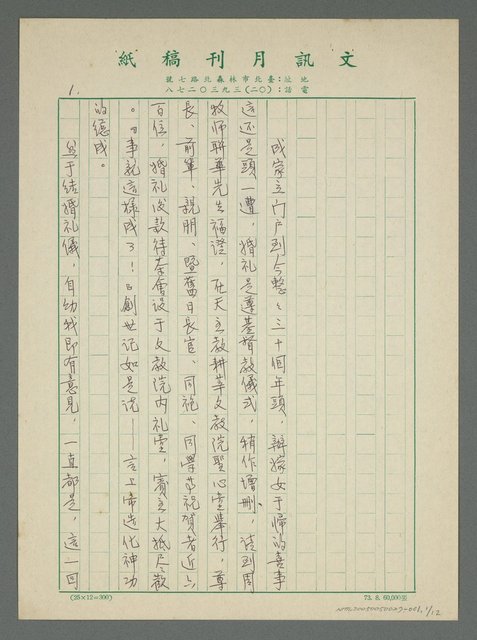 文訊月刊稿紙
地址:臺北市林森北路七號
電話:(〇二)三九三〇二七八
1.
成家立门户到今整整三十個年頭，辦嫁女于歸的喜事
這还是頭一遭，婚礼是遵基督教儀式，稍作增刪，請到周
牧师聯華先生福證，在天主教耕莘文教院聖心堂舉行，尊
長、前輩、親朋、暨舊日長官、同袍、同學等祝賀者近六
百位，婚礼後款待茶會设于文教院内礼堂，賓主大抵尽歡
。『事就這樣成了！』創世记如是说——言上帝造化神功
的德成。
至于结婚礼儀，自幼我即有意見，一直都是，這一回
(25×12=300)
73. 8. 60,000張
NTL2005050027-001, 1/12